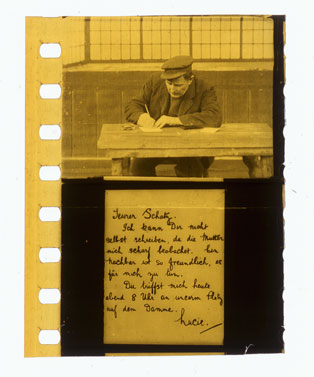 Teurer Schatz.
Ich kann Dir nicht
selbst schreiben, da die Mutter
mich scharf beobachtet. Ein
Nachbar ist so freundlich, es
für mich zu tun.
Du triffst mich heute
abend 8 Uhr an unserm Platz
auf dem Damme.